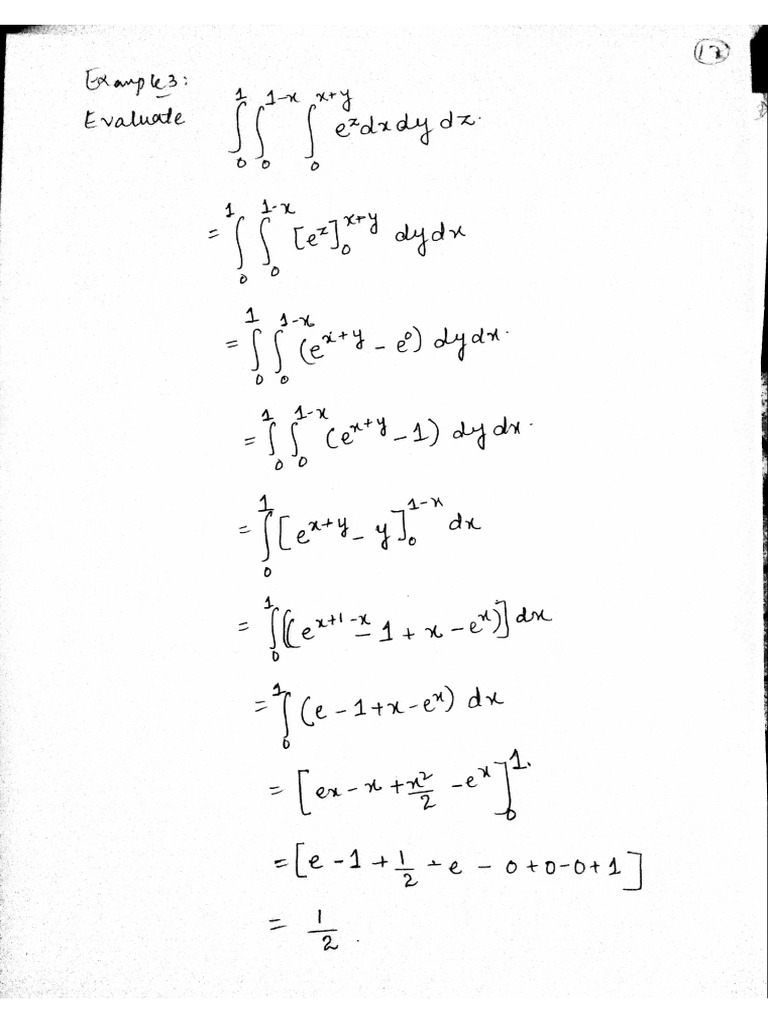 (17)
Example 3:
Evaluate ∫₀¹ ∫₀^{1-x} ∫₀^{x+y} e^z dx dy dz.
= ∫₀¹ ∫₀^{1-x} [e^z]₀^{x+y} dy dx
= ∫₀¹ ∫₀^{1-x} (e^{x+y} - e⁰) dy dx.
= ∫₀¹ ∫₀^{1-x} (e^{x+y} - 1) dy dx.
= ∫₀¹ [e^{x+y} - y]₀^{1-x} dx
= ∫₀¹ [(e^{x+1-x} - 1 + x - e^x)] dx
= ∫₀¹ (e - 1 + x - e^x) dx
= [ex - x + x²/2 - e^x]₀^{1.}
= [e - 1 + 1/2 - e - 0 + 0 - 0 + 1]
= 1/2.